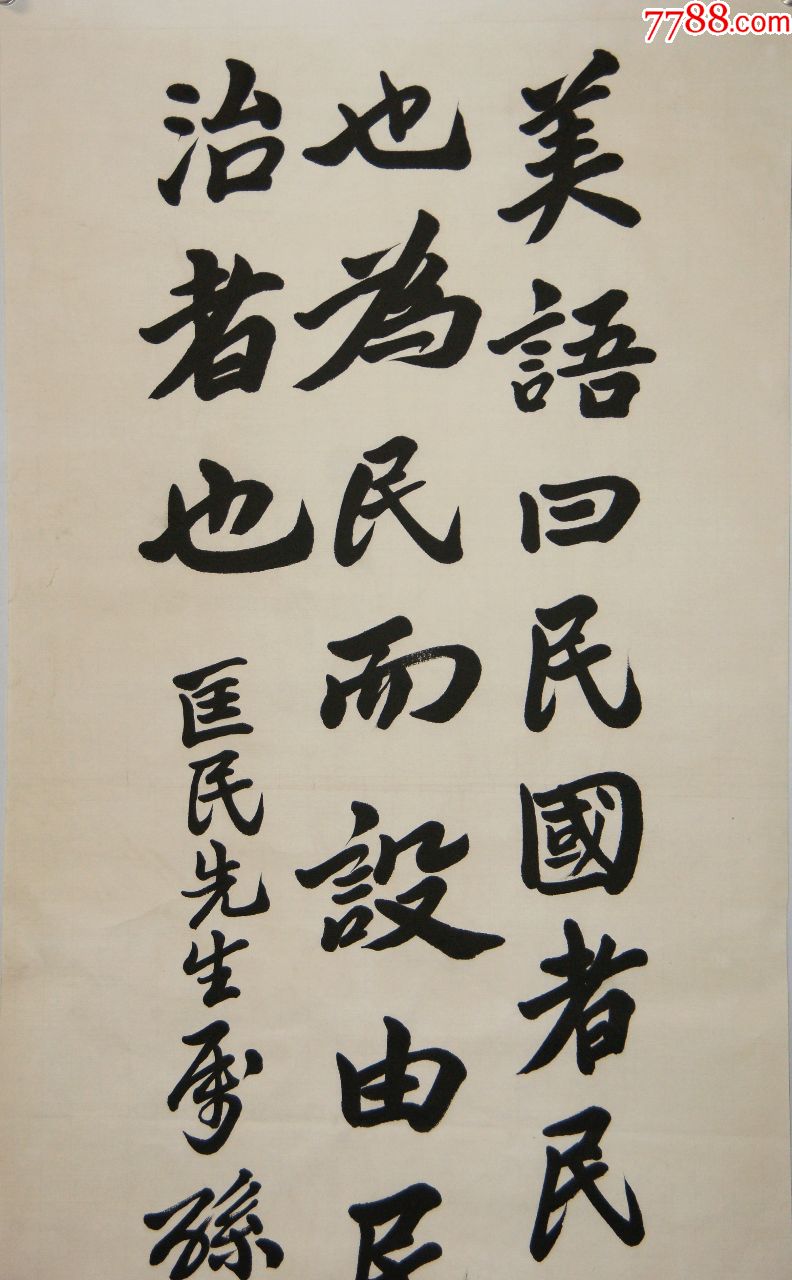 7788.com
美語曰民國者民
也為民而設由民
治者也
匡民先生属孫